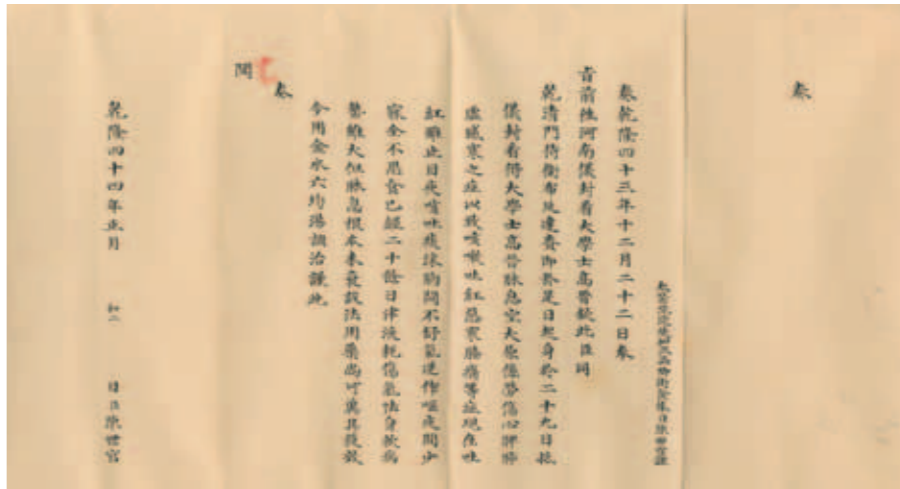 奏
太醫院院判三品卿銜食俸臣陳世官謹
奏乾隆四十三年十二月二十二日奉
旨前往河南儀封看大學士高晉欽此臣同
乾清門侍衛布延達賚即於是日起身於二十九日抵
儀封看得大學士高晉脉息空大原係勞傷心脾肺
虛感寒之症以致咳嗽吐紅惡寒腸痛等症現在吐
紅雖止日夜嗽吐痰涎胸間不舒氣逆作嘔夜間少
寐全不思食已經二十餘日津液耗傷氣怯身軟病
勢雖大但脉息根本未衰設法用藥尚可冀其獲效
今用金水六均湯調治謹此
奏
聞
乾隆四十四年正月 初二 日臣陳世官